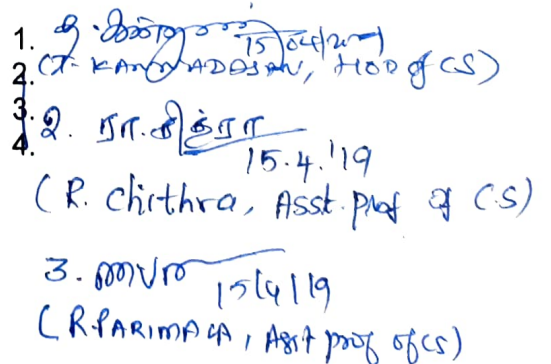 1.
15/04/2019
2. (T. KANNADASAN, HOD of CS)
3.
4. 2. ரா.சித்ரா
15.4.'19
(R. Chithra, Asst. Prof of CS)
3. 15/4/19
(R.PARIMALA, Asst prof of CS)